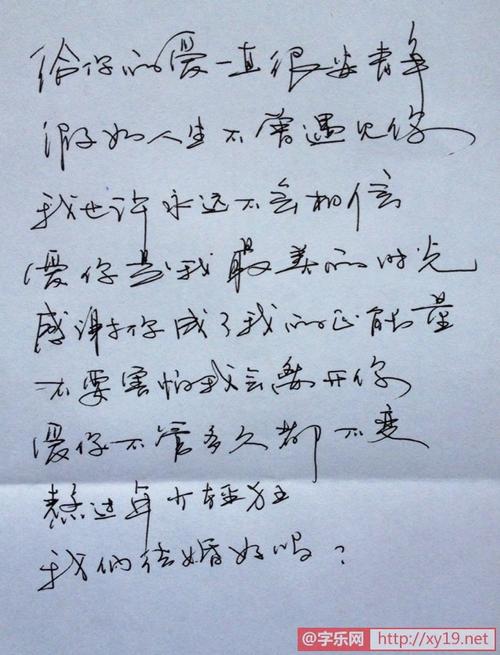 给你的爱一直很安静
假如人生不曾遇见你
我也许永远不会相信
爱你是我最美的时光
感谢你成了我的正能量
不要害怕我会离开你
爱你不管多久都不变
熬过年少轻狂
我们结婚好吗？
@字乐网 http://xy19.net